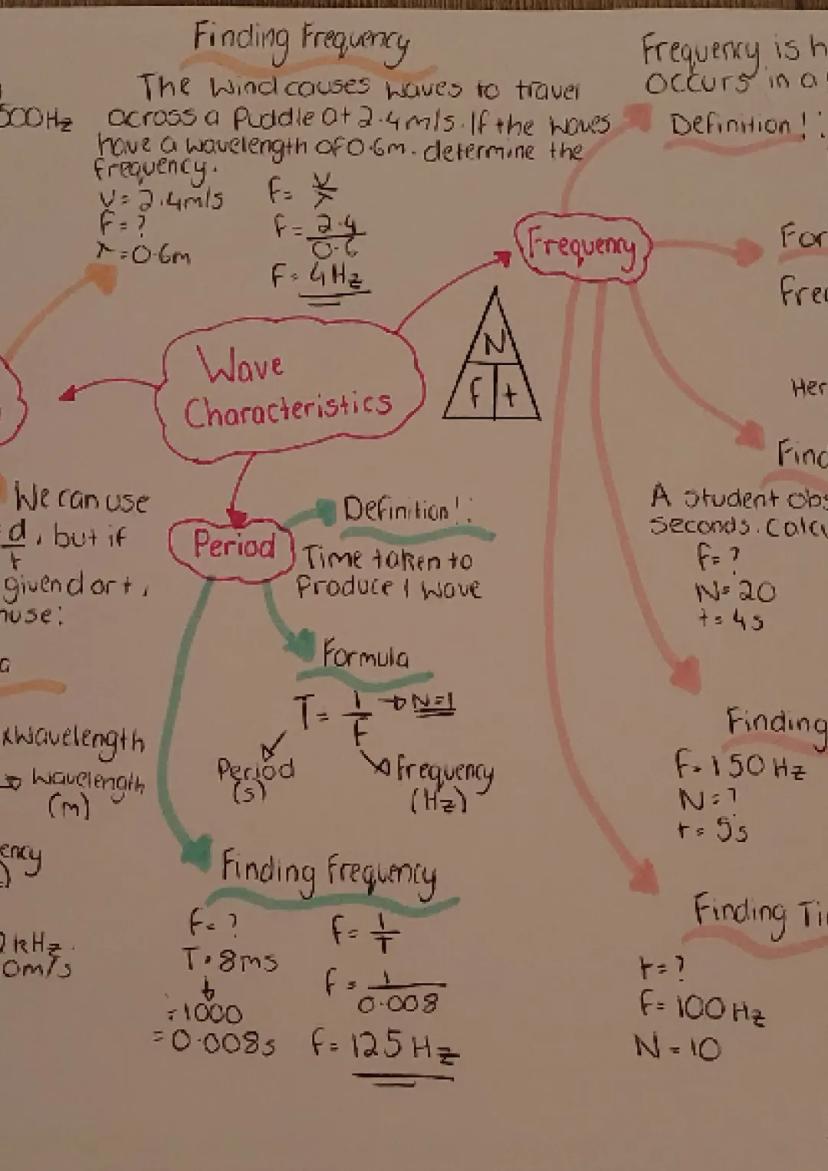 Finding Frequency
The wind causes waves to travel
across a puddle at 2.4m/s. If the waves
have a wavelength of 0.6m. determine the
frequency.
V = 2.4m/s
F = ?
λ = 0.6m
F = V/λ
F = 2.4/0.6
F = 4Hz
500Hz
Frequency is h
occurs in a
Definition!:
Frequency
For
Fre
Her
N
f t
Wave
Characteristics
We can use
d/t, but if
given d or t,
use:
a
x Wavelength
→ Wavelength
(m)
ency
kHz.
0m/s
Period
Definition!:
Time taken to
Produce 1 wave
Formula
T = 1/F → N=1
Period
(s)
Frequency
(Hz)
Finding Frequency
F = ?
T = 8ms
÷1000
= 0.008s
F = 1/T
F = 1/0.008
F = 125Hz
Find
A student obs
seconds. Calcu
F = ?
N = 20
t = 4s
Finding
F = 150Hz
N = ?
t = 5s
Finding Ti
t = ?
F = 100Hz
N = 10